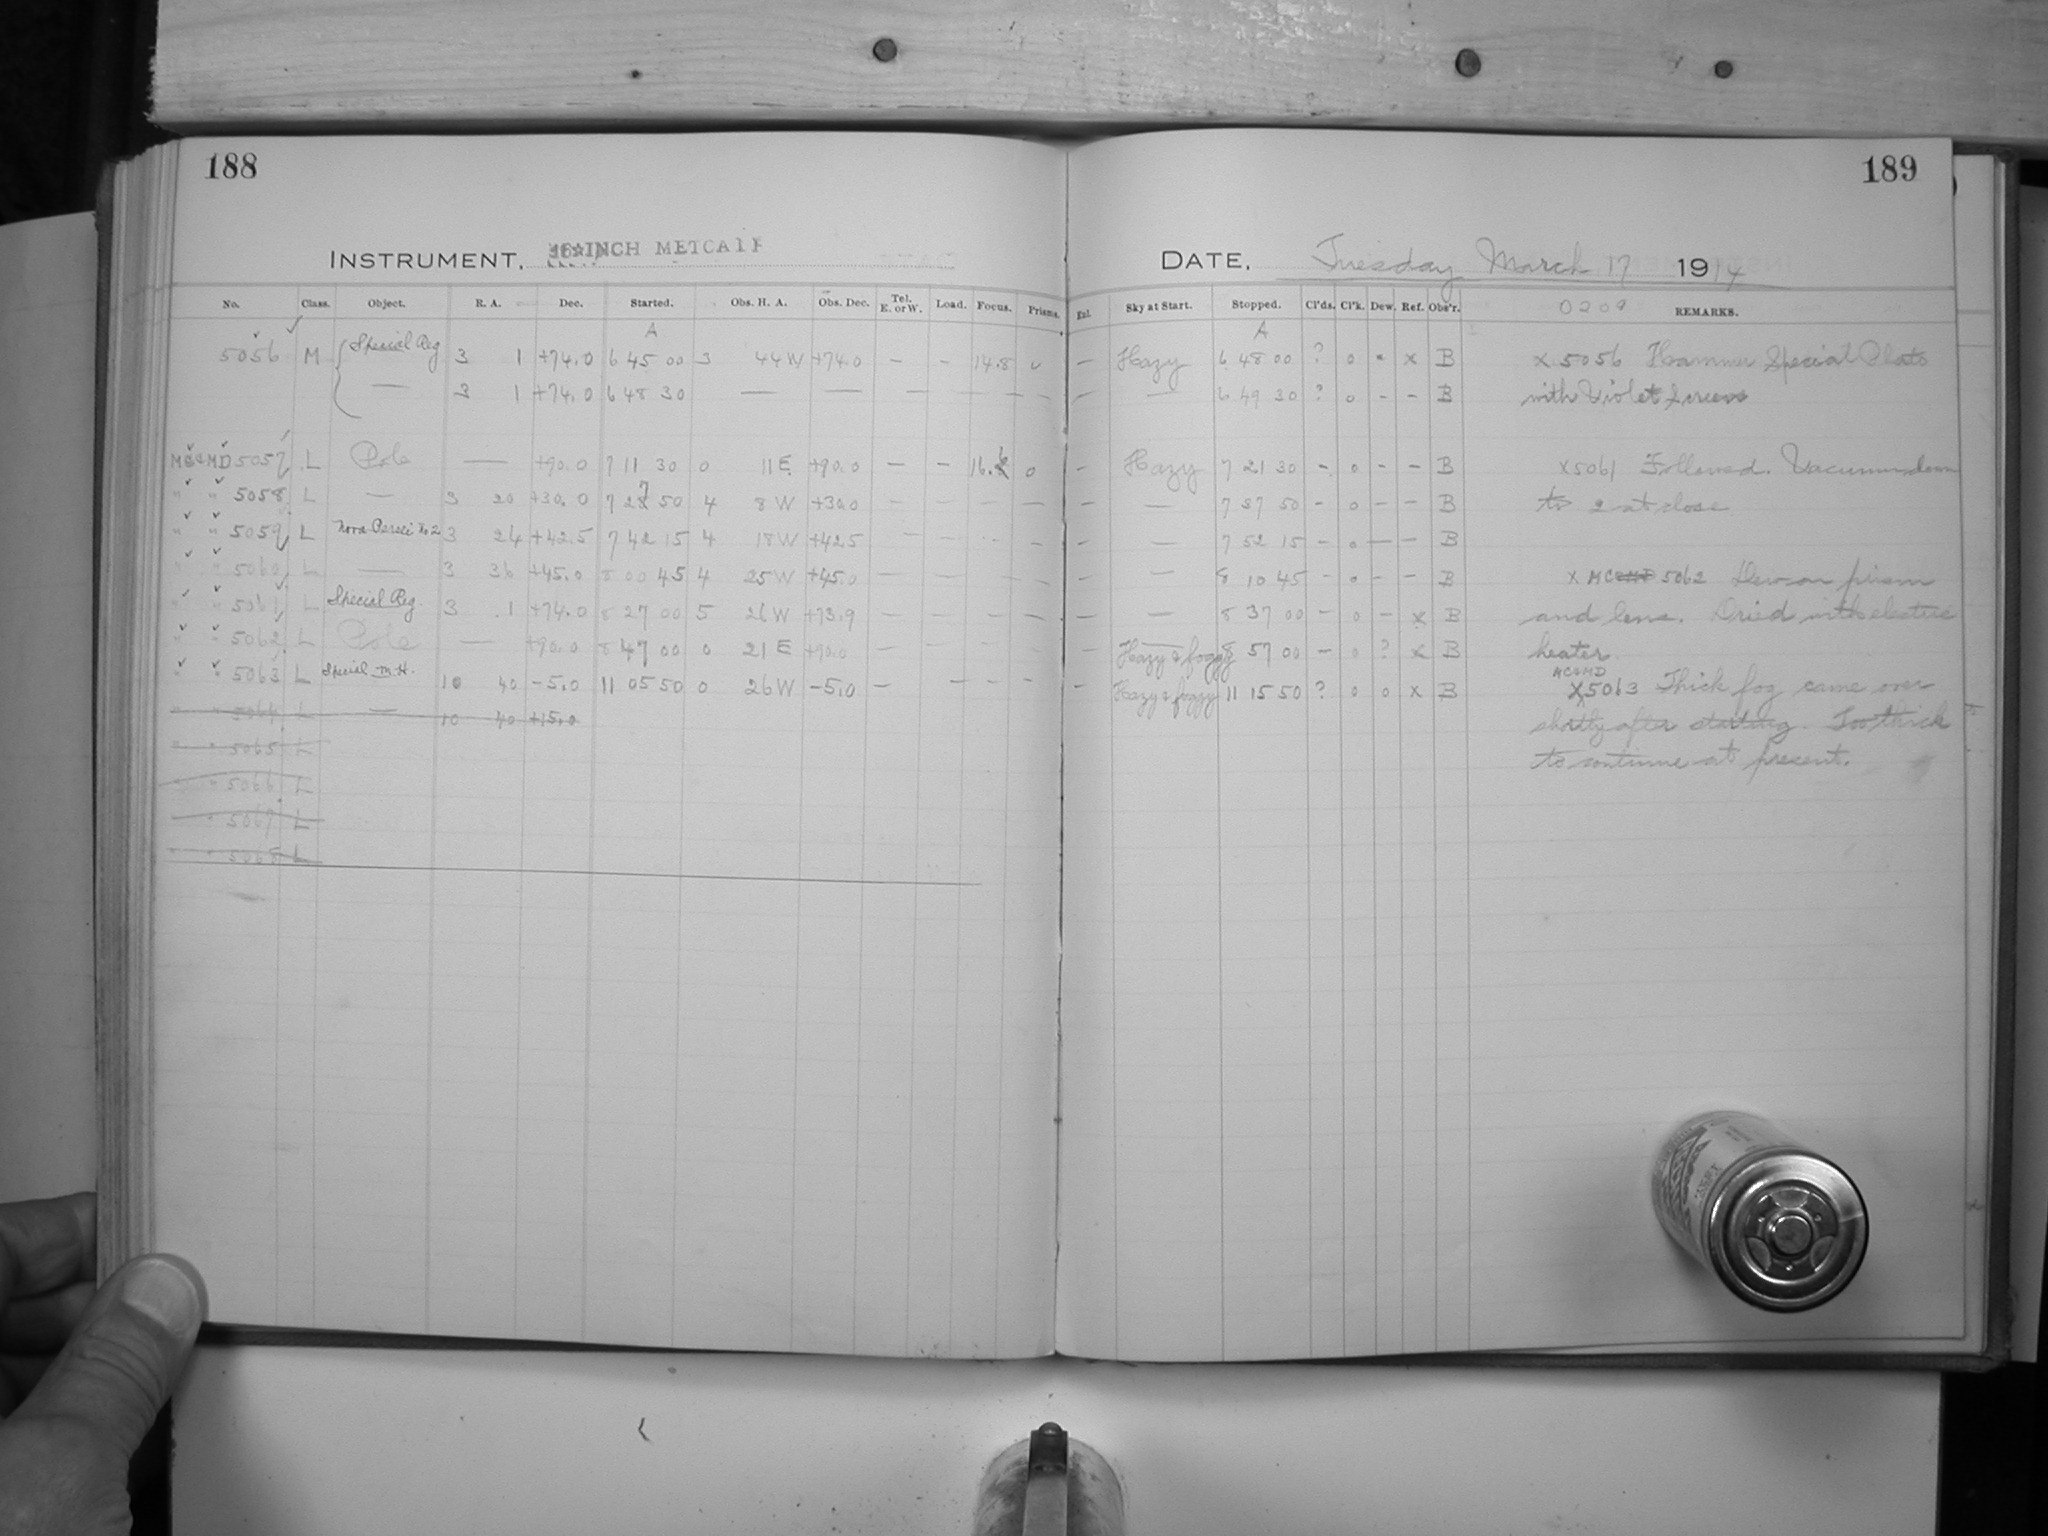 188
189
INSTRUMENT, 16-INCH METCALF
DATE, Tuesday March 17 1914
No. Class. Object. R. A. Dec. Started. Obs. H. A. Obs. Dec. Tel. E. or W. Load. Focus. Prisms. Exl. Sky at Start. Stopped. Cl'ds. Cl'k. Dew. Ref. Obs'r. 0209 REMARKS.
A A
5056 M Special Reg 3 1 +74.0 6 45 00 3 44 W +74.0 — – 14.8 – Hazy 6 48 00 ? 0 - x B X 5056 Hammer Special Plate
— 3 1 +74.0 6 48 30 — — — — — — — — — 6 49 30 ? 0 - - B with Violet screens
MC&MD 5057 L Pole — +90.0 7 11 30 0 11 E +90.0 — – 16. 0 – Hazy 7 21 30 - 0 - - B X5061 Followed. Vacuum down
" " 5058 L — 3 20 +30.0 7 27 50 4 8 W +30.0 — 7 37 50 - 0 - - B to 2 at close
" " 5059 L Nova Persei No 2 3 24 +42.5 7 42 15 4 18 W +42.5 — 7 52 15 - 0 — - B
" " 5060 L — 3 36 +45.0 8 00 45 4 25 W +45.0 — 8 10 45 - 0 - - B X MC&MD 5062 Dew on prism
" " 5061 L Special Reg. 3 1 +74.0 8 27 00 5 26 W +73.9 — 8 37 00 - 0 - x B and lens. Dried with electric
" " 5062 L Pole — +90.0 8 47 00 0 21 E +90.0 Hazy & foggy 8 57 00 - 0 ? x B heater
MC&MD
" " 5063 L Special M.H. 10 40 -5.0 11 05 50 0 26 W -5.0 — Hazy & foggy 11 15 50 ? 0 0 x B X5063 Thick fog came over
5064 L — 10 40 +15.0 shortly after starting. Too thick
" " 5065 L to continue at present.
" " 5066 L
" 5067 L
" " 5068 L